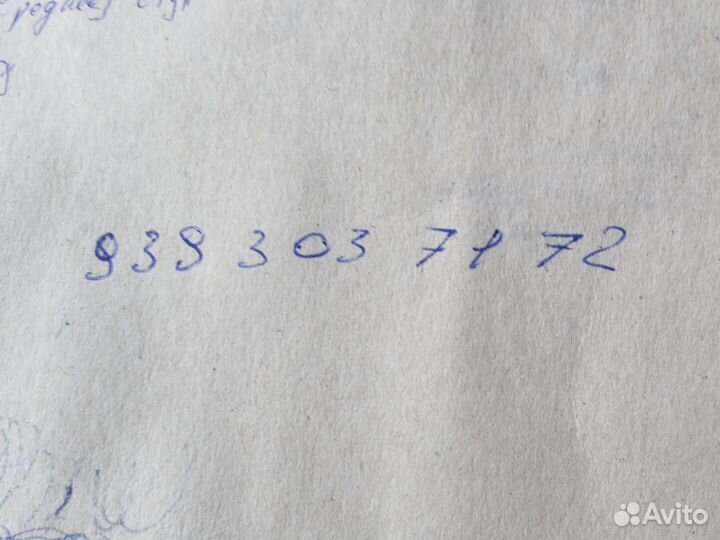 939 303 71 72
Avito